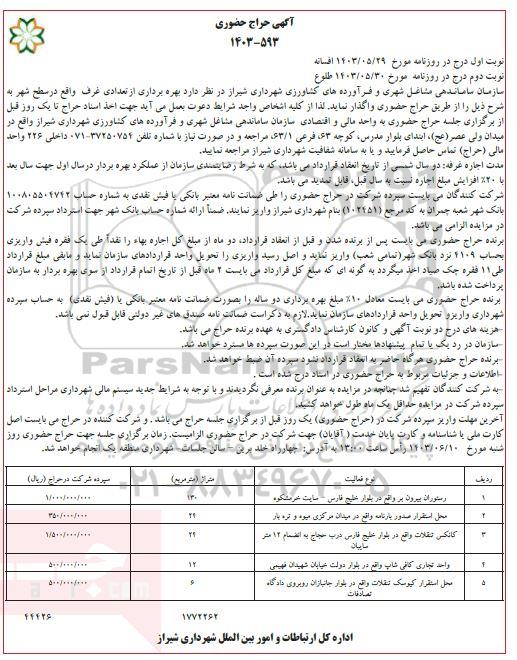 آگهی حراج حضوری
۱۴۰۳-۵۹۳
نوبت اول درج در روزنامه مورخ ۱۴۰۳/۰۵/۲۹ افسانه
نوبت دوم درج در روزنامه مورخ ۱۴۰۳/۰۵/۳۰ طلوع
سازمان ساماندهی مشاغل شهری و فرآورده های کشاورزی شهرداری شیراز در نظر دارد بهره برداری از تعدادی غرف واقع درسطح شهر به
شرح ذیل را از طریق حراج حضوری واگذار نماید. لذا از کلیه اشخاص واجد شرایط دعوت بعمل می آید جهت اخذ اسناد حراج تا یک روز قبل
از برگزاری جلسه حراج حضوری به واحد مالی و اقتصادی سازمان ساماندهی مشاغل شهری و فرآورده های کشاورزی شهرداری شیراز واقع در
میدان ولی عصر(عج)، ابتدای بلوار مدرس، کوچه ۶۳، فرعی ۶۳/۱، مراجعه و در صورت نیاز با شماره تلفن ۳۷۲۵۰۷۵۴-۰۷۱ داخلی ۲۲۶ واحد
مالی (حراج) تماس حاصل فرمایید و یا به سامانه شفافیت شهرداری شیراز مراجعه نمایید.
مدت اجاره غرفه: دو سال شمسی از تاریخ انعقاد قرارداد می باشد، که به شرط رضایتمندی سازمان از عملکرد بهره بردار درسال اول جهت سال بعد
با ۲۰٪ افزایش مبلغ اجاره نسبت به سال قبل، قابل تمدید می باشد.
شرکت کنندگان می بایست سپرده شرکت در حراج حضوری را طی ضمانت نامه معتبر بانکی یا فیش نقدی به شماره حساب ۱۰۰۸۰۵۵۰۴۷۴۲
بانک شهر شعبه چمران به کد مرجع (۱۰۲۴۵۱) بنام شهرداری شیراز واریز نمایند. ضمناً ارائه شماره حساب بانک شهر جهت استرداد سپرده شرکت
در مزایده الزامی می باشد.
برنده حراج حضوری می بایست پس از برنده شدن و قبل از انعقاد قرارداد، دو ماه از مبلغ کل اجاره بهاء را نقداً طی یک فقره فیش واریزی
بحساب ۴۱۰۹ نزد بانک شهر(تمامی شعب) واریز نماید و اصل رسید واریزی را تحویل واحد قراردادهای سازمان نماید و مابقی مبلغ قرارداد
طی۱۱ فقره چک صیاد اخذ میگردد به گونه ای که مبلغ کل قرارداد می بایست ۲ ماه قبل از تاریخ اتمام قرارداد از سوی بهره بردار به سازمان
پرداخت شده باشد.
برنده حراج حضوری می بایست معادل ۱۰٪ مبلغ بهره برداری دو ساله را بصورت ضمانت نامه معتبر بانکی یا (فیش نقدی) به حساب سپرده
شهرداری واریزو تحویل واحد قراردادهای سازمان نماید.لازم به ذکراست ضمانت نامه صندق های غیر دولتی قابل قبول نمی باشد.
هزینه های درج دو نوبت آگهی و کانون کارشناس دادگستری به عهده برنده حراج می باشد.
سازمان در رد یک یا تمام پیشنهادها مختار است در این صورت سپرده ها مسترد خواهد شد.
برنده حراج حضوری هرگاه حاضر به انعقاد قرارداد نشود سپرده آن ضبط خواهد شد.
اطلاعات و جزئیات مربوط به حراج حضوری در اسناد درج شده است .
به شرکت کنندگان تفهیم شد چنانچه در مزایده به عنوان برنده معرفی نگردیدند و با توجه به شرایط جدید سیستم مالی شهرداری مراحل استرداد
سپرده شرکت در مزایده حداقل یک ماه طول خواهد کشید.
آخرین مهلت واریز سپرده شرکت در (حراج حضوری) یک روز قبل از برگزاری جلسه حراج می باشد . و شرکت کننده در حراج می بایست اصل
کارت ملی یا شناسنامه و کارت پایان خدمت ( آقایان) جهت شرکت در حراج حضوری الزامیست. زمان برگزاری جلسه جهت حراج حضوری روز
شنبه مورخ ۱۴۰۳/۰۶/۱۰ رأس ساعت ۱۳:۰۰ به آدرس: چهارراه خلد برین – سالن جلسات- شهرداری منطقه یک انجام خواهد شد.
ردیف نوع فعالیت متراژ (مترمربع) سپرده شرکت درحراج (ریال)
۱ رستوران بیرون بر واقع در بلوار خلیج فارس – سایت خرمشکوه ۱۳۰ ۱/۰۰۰/۰۰۰/۰۰۰
۲ محل استقرار صدور بارنامه واقع در میدان مرکزی میوه و تره بار ۲۴ ۳۵۰/۰۰۰/۰۰۰
۳ کانکس تنقلات واقع در بلوار خلیج فارس درب حجاج به انضمام ۱۲ متر سایبان ۲۴ ۱/۵۰۰/۰۰۰/۰۰۰
۴ واحد تجاری کافی شاپ واقع در بلوار دولت خیابان شهیدان فهیمی ۱۲ ۵۰۰/۰۰۰/۰۰۰
۵ محل استقرار کیوسک تنقلات واقع در بلوار جانبازان روبروی دادگاه تصادفات ۶ ۵۰۰/۰۰۰/۰۰۰
۱۷۷۲۲۶۲ ۴۴۴۲۶
اداره کل ارتباطات و امور بین الملل شهرداری شیراز
ParsNa
۰۲۱-۸۸۳۴۹۶۷۰-۵